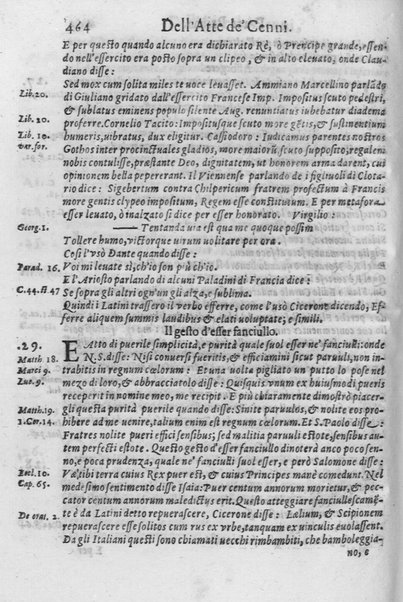 464 Dell'Arte de' Cenni.
E per questo quando alcuno era dichiarato Ré, ò Prencipe grande, essen-
do nell'essercito era posto sopra un clipeo, & in alto eleuato, onde Clau-
diano disse:
Sed mox cum solita miles te uoce leuasset. Ammiano Marcellino parlādo
Lib. 20. di Giuliano gridato dall'essercito Francese Imp. Impositus scuto pedestri,
& sublatus eminens populo silente Aug. renuntiatus iubebatur diadema
Lib. 20. proferre. Cornelio Tacito: Impositusque scuto more gētis, & sustinentium
Lib. 10. humeris, uibratus, dux eligitur. Cassiodoro: Iudicamus parentes nostros
var. for. Gothos inter procinctuales gladios, more maiorū scuto supposito, regalem
nobis contulisse, præstante Deo, dignitatem, ut honorem arma darent, cui
opinionem bella pepererant. Il Viennense parlando de i figliuoli di Clota-
rio dice: Sigebertum contra Chilpericum fratrem profectum à Francis
more gentis clypeo impositum, Regem esse constitutum. E per metafora
esser leuato, ò inalzato si dice per esser honorato. Virgilio:
Georg. 1. Tentanda uia est qua me quoque possim
Tollere humo, uictorque uirum uolitare per ora.
Cosi l'usò Dante quando disse:
Parad. 16. Voi mi leuate sì, ch'io son più ch'io.
Et l'Ariosto parlando di alcuni Paladini di Francia dice:
C. 44. st 47 Se sopra gli altri ogn'un gli alza, e sublima.
Quindi i Latini trassero il verbo efferre, come l'usò Cicerone dicendo, Ef-
ferre aliquem summis laudibus & elati uoluptate; e simili.
Il gesto d'esser fanciullo.
. 29. E Atto di puerile simplicità, e purità quale suol esser ne' fanciulli: onde
Matth 18. N.S. disse: Nisi conuersi fueritis, & efficiamini sicut paruuli, non in-
Marci 9. trabitis in regnum cœlorum: Et una uolta pigliato un putto lo pose nel
Luc. 9. mezo di loro, & abbracciatolo disse: Quisquis vnum ex buiusmodi pueris
receperit in nomine meo, me recipit. E più chiaramente dimostrò piacer-
Matth. 19. gli questa purità puerile quando disse: Sinite paruulos, & nolite eos pro-
1. Cor. 14. hibere ad me uenire, talium enim est regnum cœlorum. Et S. Paolo disse:
Fratres nolite pueri effici sensibus; sed malitia paruuli estote, sensibus au-
tem perfecti estote. Questo gesto d'esser fanciullo dinoterà anco poco sen-
no, e poca prudenza, quale ne' fanciulli suol esser, e però Salomone disse:
Eccl. 10. Væ tibi terra cuius Rex puer est, & cuius Principes manè comedunt. Nel
Cap. 65. medesimo sentimento disse Isaia: Puer centum annorum morietur, & pec-
cator centum annorum maledictus erit. Questo atteggiare fanciullescamē-
De ora. 2. te è da Latini detto repuerascere, Cicerone disse: Lælium, & Scipionem
repuerascere esse solitos cum rus ex vrbe, tanquam ex uinculis euolassent.
Da gli Italiani questi sono chiamati uecchi rimbambiti, che bamboleggia-
no, &